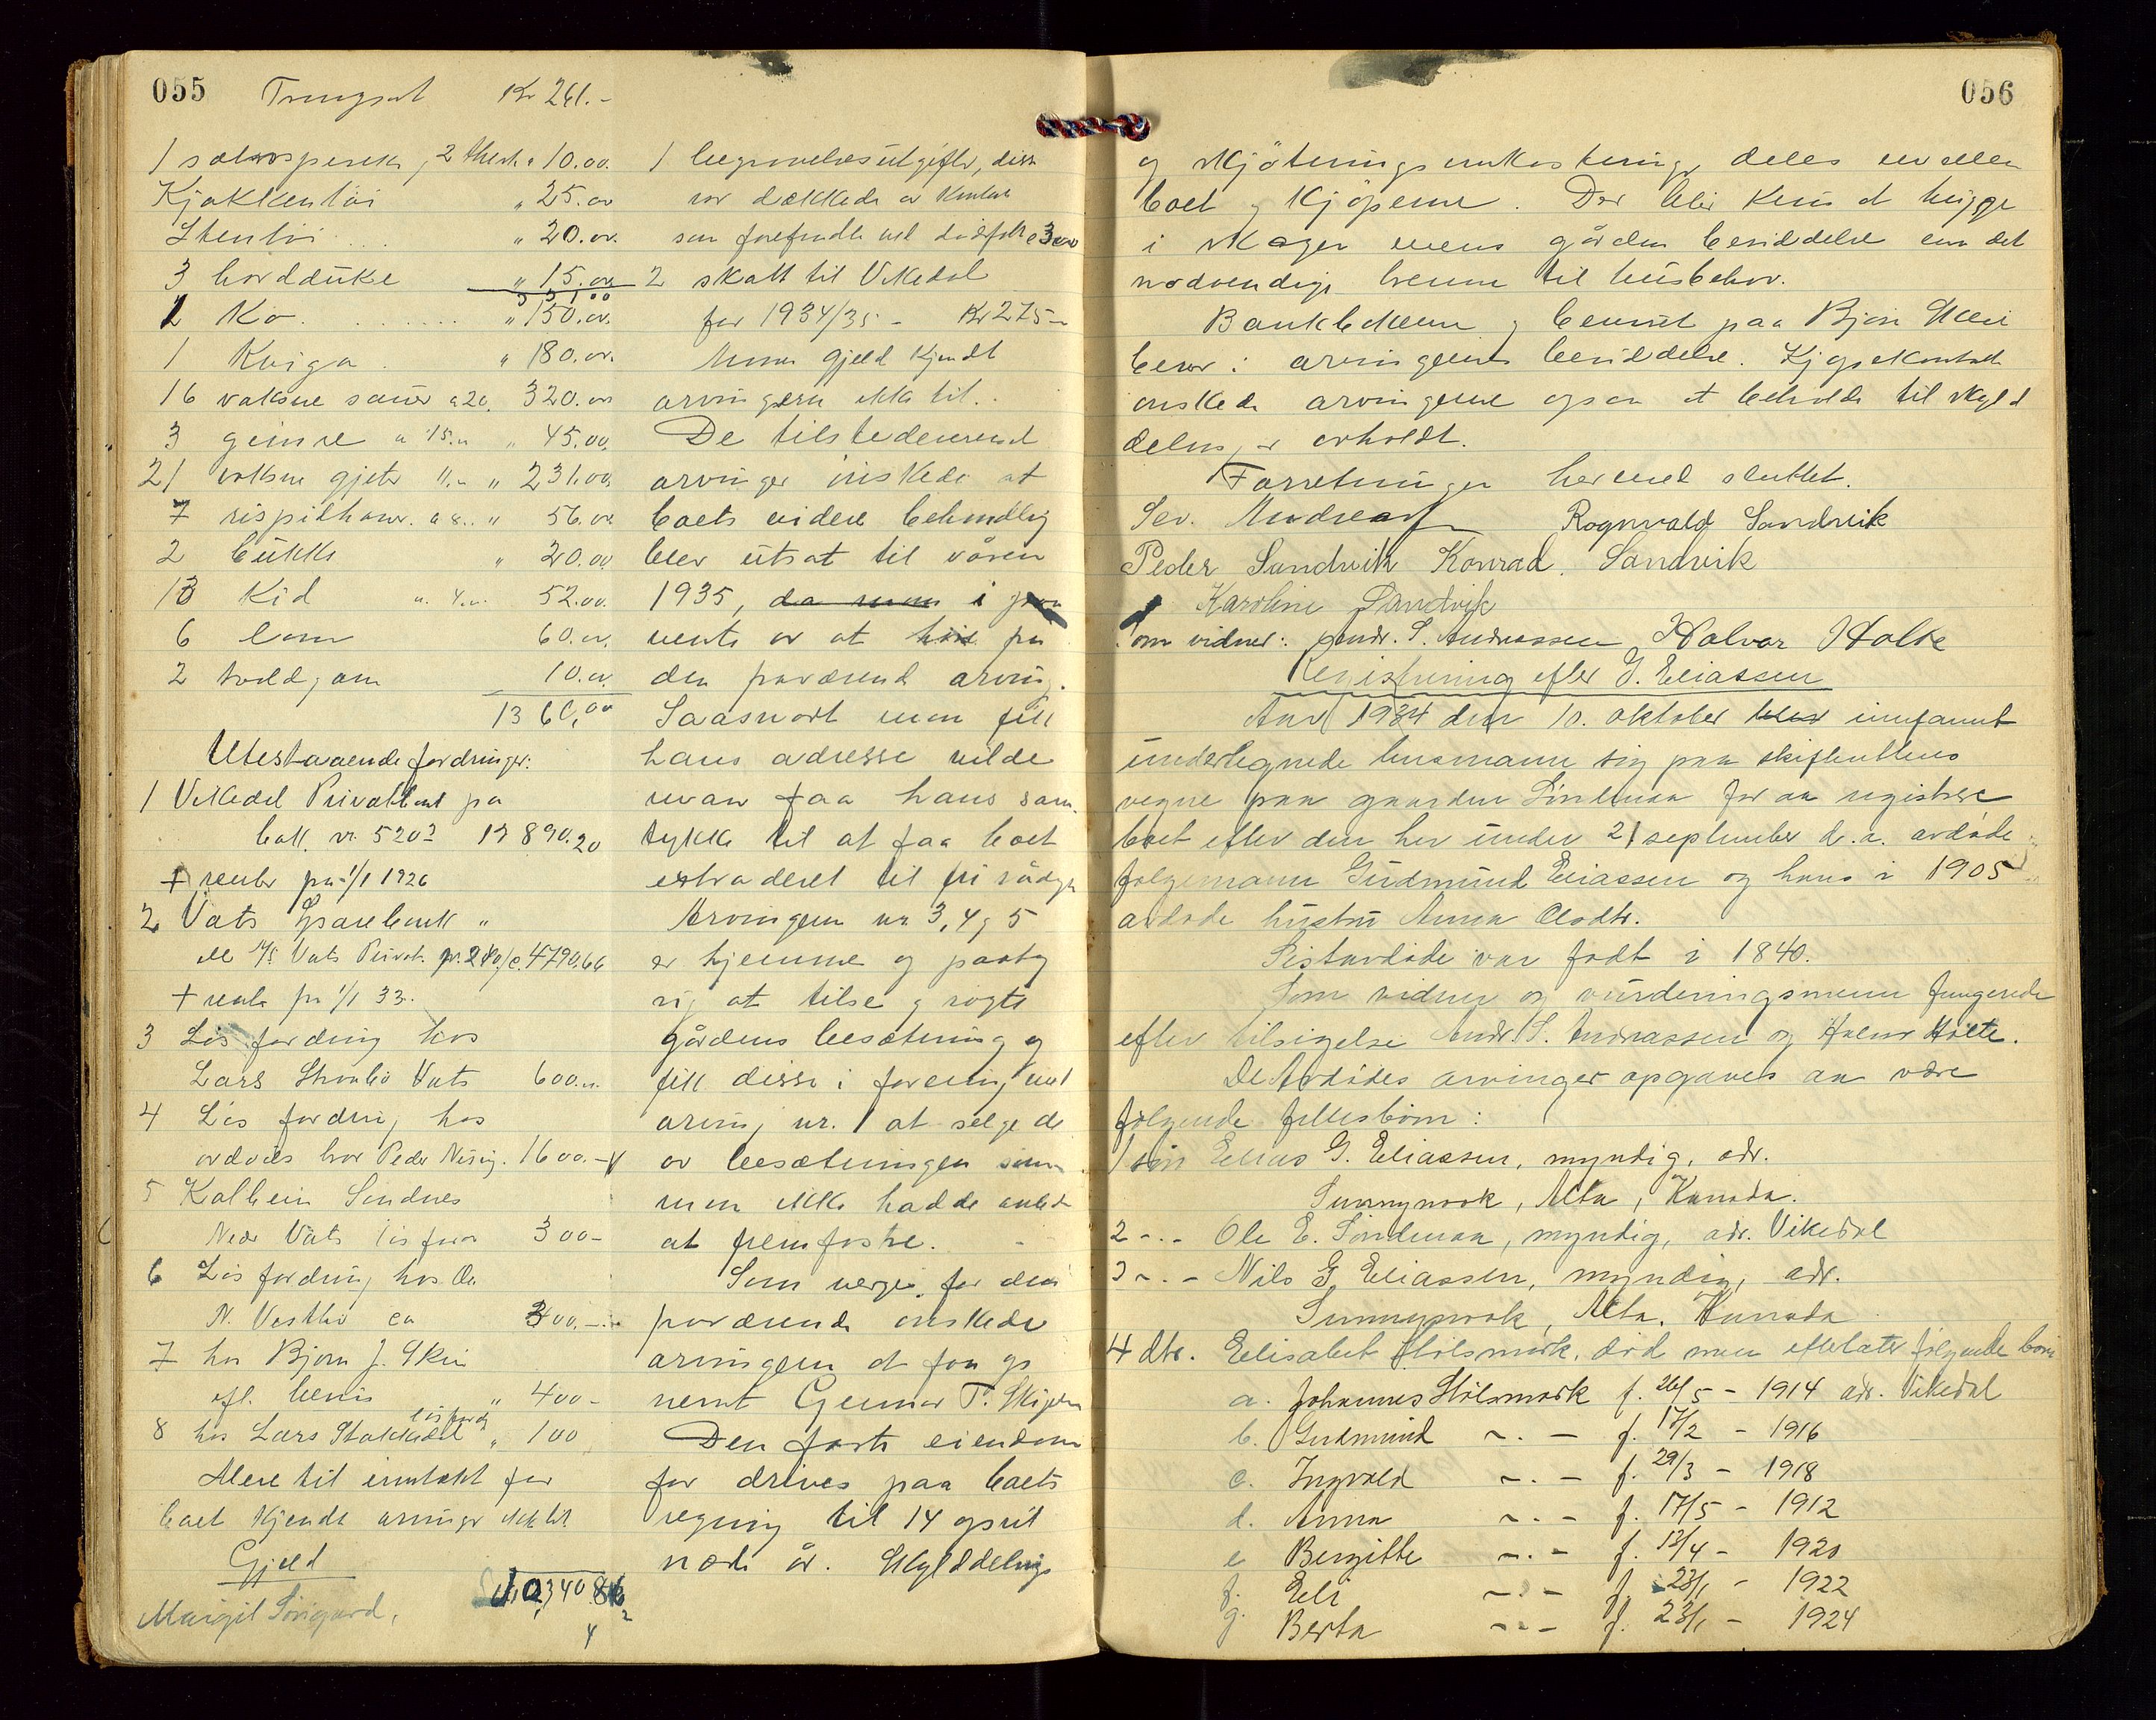 055 Kr 261.-
10.00.
Kjøkkentøi " 25.00
Stentøi " 20.00.
3 bordduke " 15.00
351 00
1 Ko " 150.00.
1 Kviga " 180.00.
16 voksne sauer a 20. 320.00
3 gimre a 15.00 " 45.00.
21 voksne gjeter 11.00 " 231.00
7 a 8.. " 56.00
2 bukke " 20.00
13 Kid a. 4.00. 52.00.
6 lam 60.00.
2 10.00.
1360,00
Utestaaende fordringer:
1 Vikedal Privatbank pa
nr. 5202 890.20
+ renter fra 1/1 1926
2 Vats Sparebank "
Vats Privatb. 4790.66
+ rente fra 1/1 33.
3 Løs fordring hos
Lars Vats 600.00.
4 Løs fordring hos
avdødes bror Peder 1600.-
5 Kolbein Sandnes
Nedr Vats løs ford 300-
6 Løs fordring hos Ole
N. ca 300.-
7 hos Bjørn J. Skei
efl. bevis " 400-
8 hos Lars Stakkedal løs fordr " 100
Mere til inntekt for
boet kjendte arvinger ikke til
Gjeld
10340.86
Margit Sørgard,
1 begravelsesutgifter, disse
var dækkede av kontant
som forefindtes ved dødsfallet
2 skatt til Vikedal
for 1934/35 - Kr 275-
Annen gjeld kjendte
arvingerne ikke til.
De tilstedeværende
arvinger ønskede at
boets videre behandling
blev utsat til våren
1935, da man i
vente av at fra
den fraværende arving.
Saasnart man fikk
hans adresse vilde
man faa hans sam-
tykke til at faa boet
extraderet til fri rådighet
Arvingerne nr 3, 4 og 5
er hjemme og paatog
sig at tilse og røgte
gårdens besætning og
fikk disse i forening med
arving nr. 1 at selge de
av besætningen som
man ikke hadde anledn
at fremfostre.
Som verge for den
fraværende ønskede
arvingerne at faa op
nevnt Gunnar T.
Den faste eiendom
for drives paa boets
regning til 14 april
næste år. Skylddelings
056
og skjøtningsomkostninger deles mellem
boet og kjøperne. Der blir kun at hugge
i skogen mens gården besiddelse enn det
nødvendige brenne til husbehov.
Bankbøkerne og beviset paa Bjørn Skei
beror i arvingernes besiddelse. Kjøpekontrakt
ønskede arvingerne ogsaa at beholde til skyld
deling er avholdt.
Forretningen hermed sluttet.
Sev. Andreassen Rognvald Sandvik
Peder Sandvik Konrad. Sandvik
Karoline Sandvik
Som vidner: Andr. S. Andreassen Halvar Holte
Registrering efter G. Eliassen
Aar 1934 den 10. oktober blev innfannt
undertegnede lensmann sig paa skifterettens
vegne paa gaarden Søndenaa for aa registrere
boet efter den her under 21 september d.a. avdøde
følgemann Gudmund Eliassen og hans i 1905
avdøde hustru Anna Olsdtr.
Sistavdøde var født i 1840.
Som vidner og vurderingsmenn fungerede
efter tilsigelse Andr. S. Andreassen og Halvar Holte.
De Avdødes arvinger opgaves aa være
følgende fellesbørn:
1 søn Elias G. Eliassen, myndig, adr.
Sunnynook, Alta, Kanada.
2 -.- Ole E. Søndenaa, myndig, adr. Vikedal
3 -.- Nils G. Eliassen, myndig, adr.
Sunnynook, Alta. Kanada
4 dtr. Elisabet Stølsmark, død men efterlater følgende børn
a. Johannes Stølsmark f. 26/5 - 1914 adr. Vikedal
b. Gudmund -.- f. 17/2 - 1916
c. Ingvald -.- f. 29/3 - 1918
d. Anna -.- f. 17/5 - 1912
e Bergitte -.- f. 13/4 - 1920
f. Eli -.- f. 23/1 - 1922
g. Berta -.- f. 23/1 - 1924